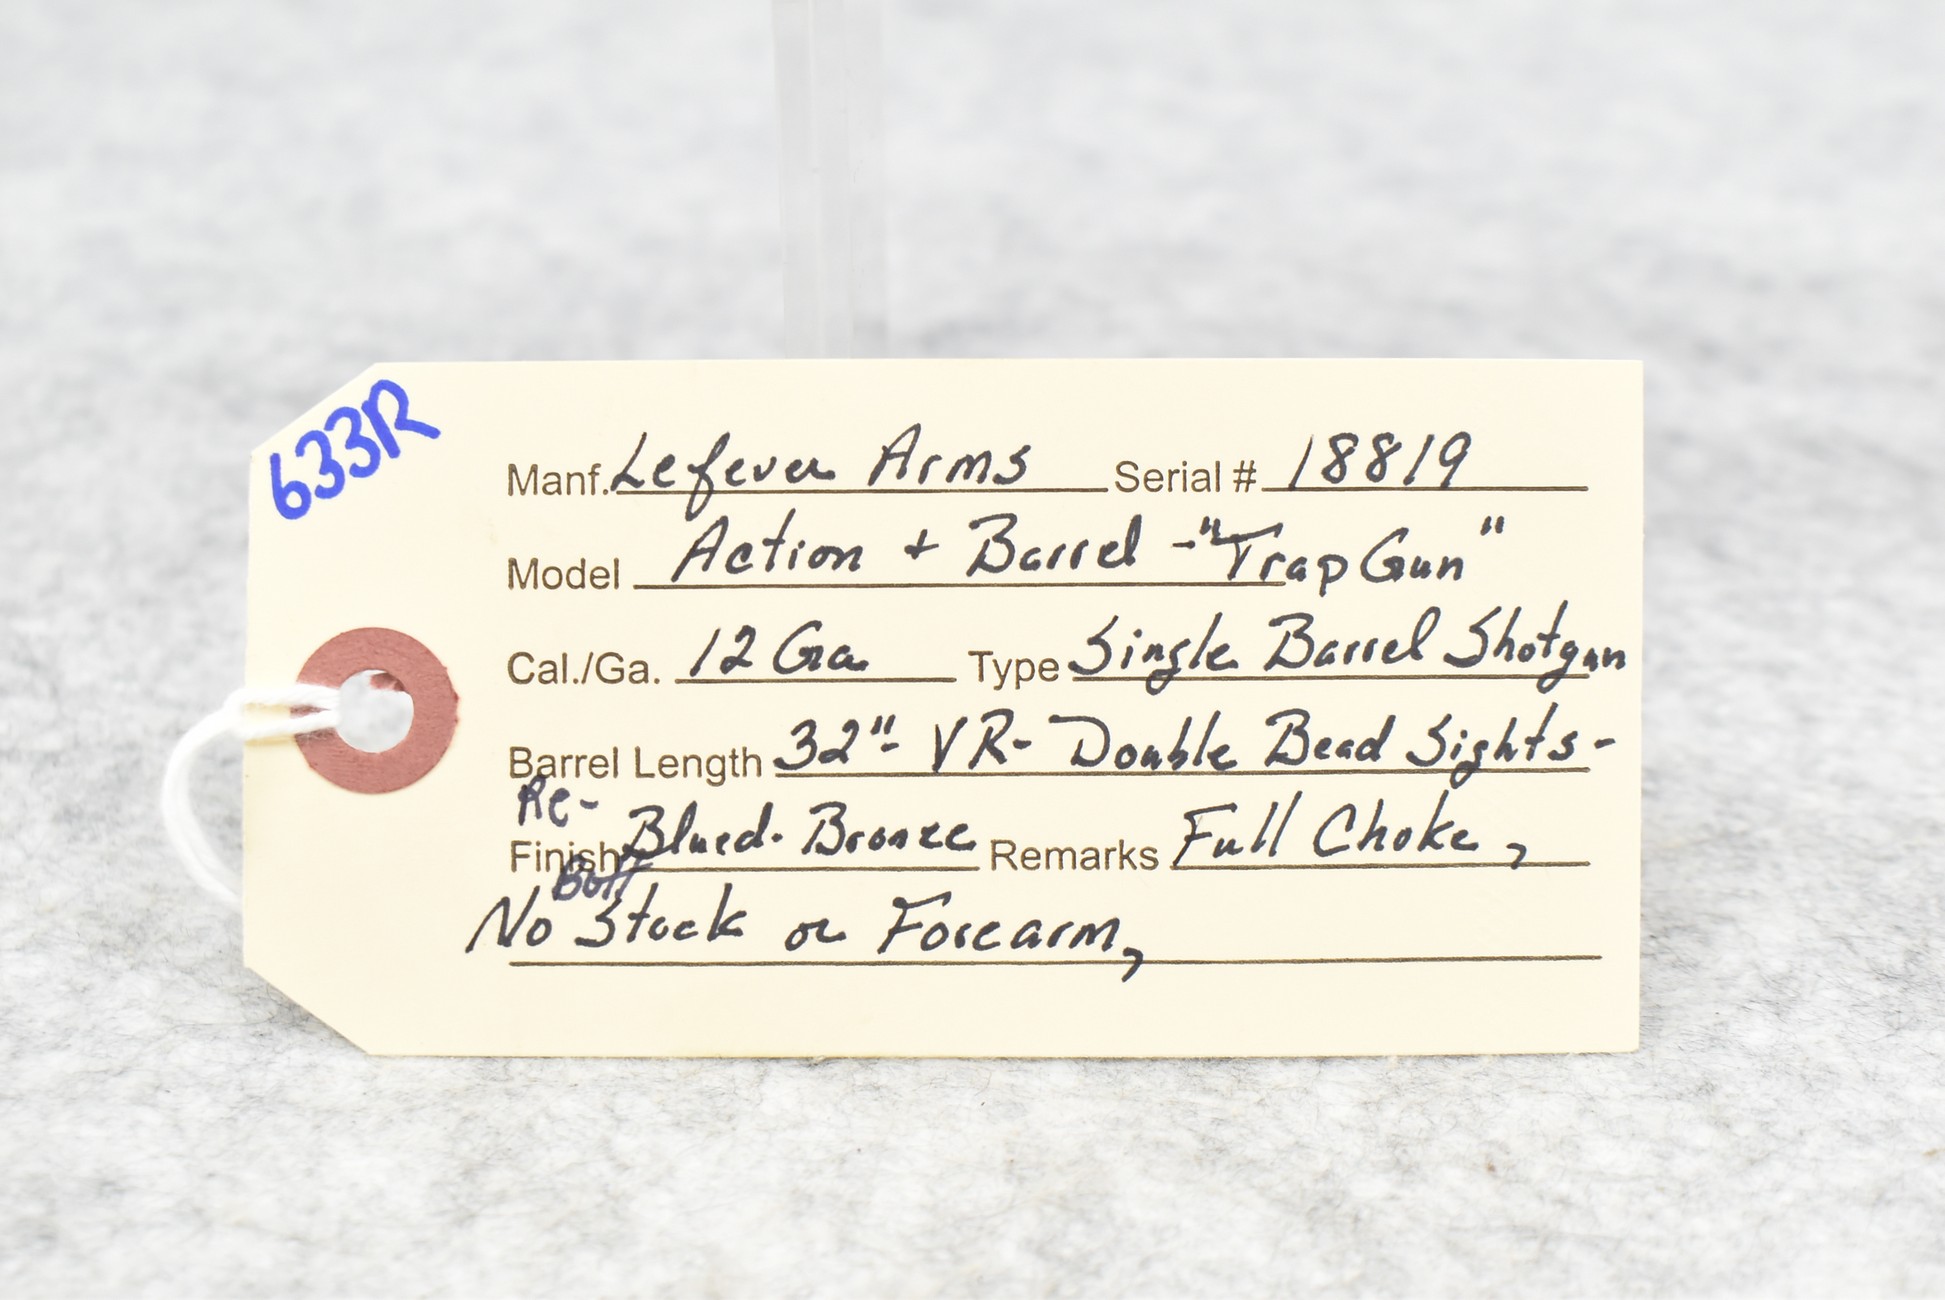 633R
Manf. Lefever Arms Serial # 18819
Model Action + Barrel - "Trap Gun"
Cal./Ga. 12 Ga. Type Single Barrel Shotgun
Barrel Length 32"- VR- Double Bead Sights-
Re-
Finish Blued. Bronze Remarks Full Choke,
Butt
No Stock or Forearm,